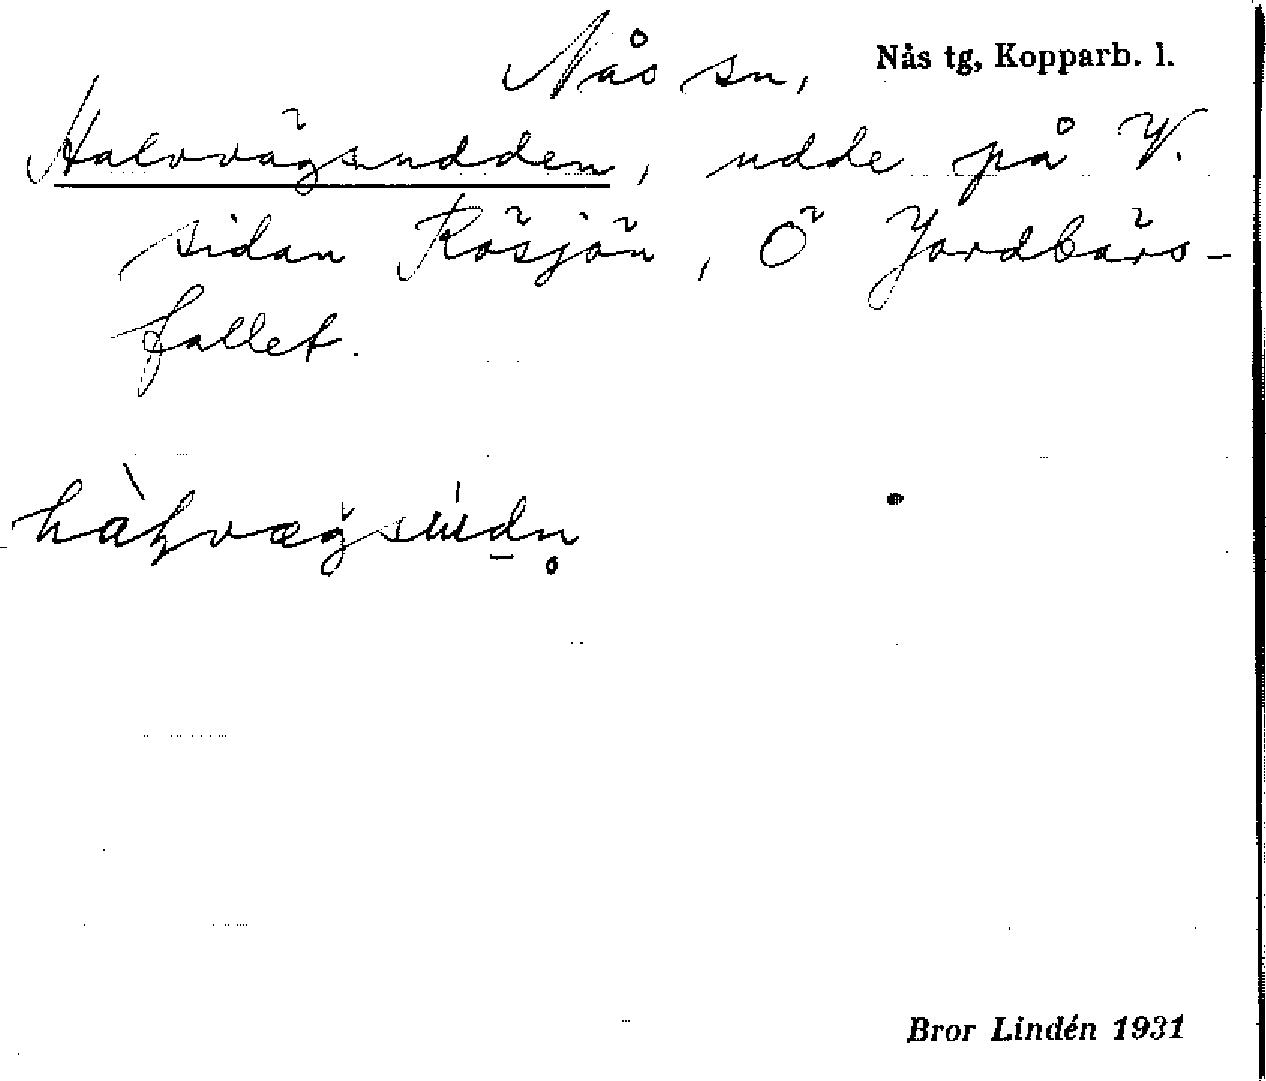 Nås sn, Nås tg, Kopparb. l.
Halvvägsudden, udde på V.
sidan Råsjön, Ö Jordbärs-
fallet.
Bror Lindén 1931